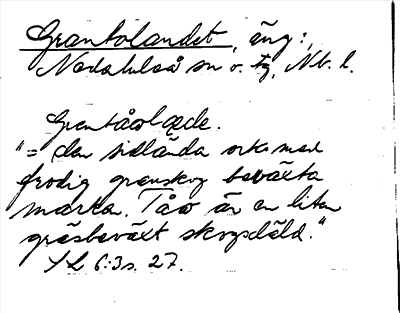 Grantolandet, äng;
Nederluleå sn o. tg, Nb. l.
Grantåolæde.
"= den sidlända ... med
frodig granskog beväxta
marka. Tåo är en liten
gräsbeväxt skogsdäld."
SL 6:3 s. 27.